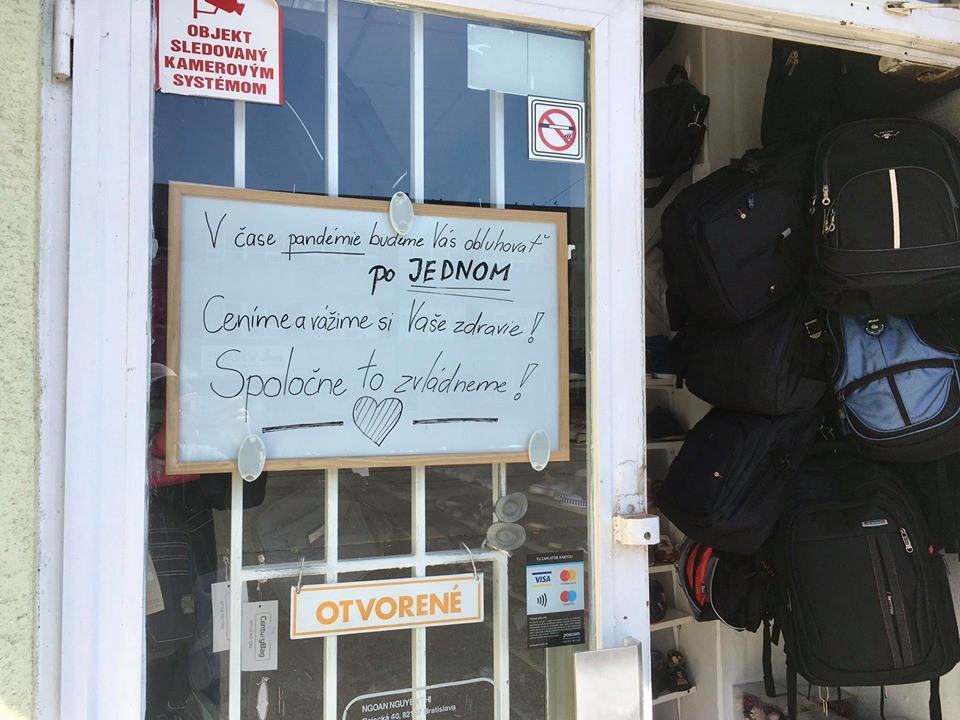 OBJEKT
SLEDOVANÝ
KAMEROVÝM
SYSTÉMOM
V čase pandémie budeme Vás obluhovať
po JEDNOM
Ceníme a vážime si Vaše zdravie!
Spoločne to zvládneme!
OTVORENÉ
TU ZAPLATÍTE KARTOU
VISA
CenturyBag
NGOAN NGUYEN THI
40, 821 Bratislava